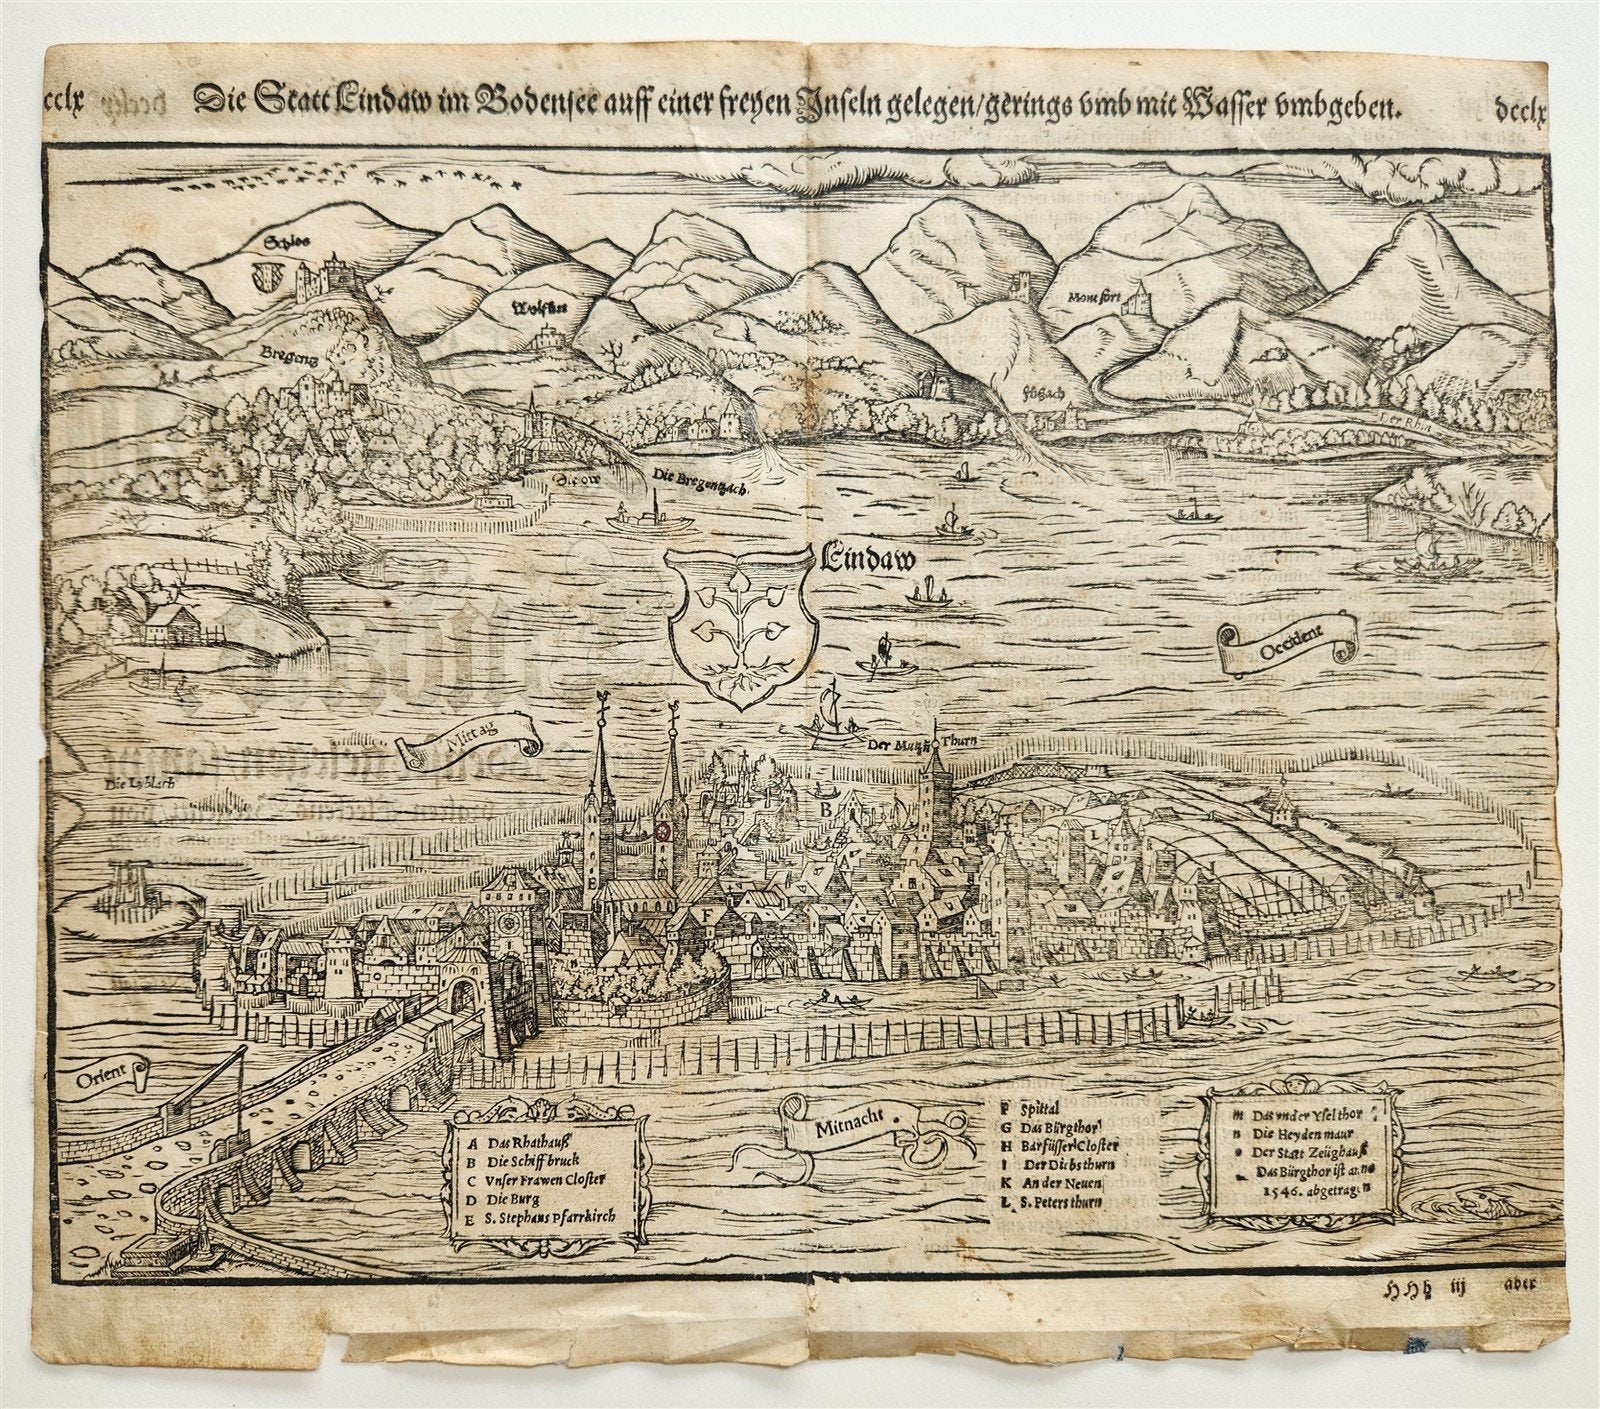 cclx
Die Statt Lindaw im Bodensee auff einer freyen Inseln gelegen/gerings vmb mit Wasser vmbgeben.
dcclx
Schlos
Mont fort
Bregentz
Fussach
Der Rhin
Die ow
Die Bregentzach
Lindaw
Occident
Mittag
Thurn
Der
B
D
L
A
E
F
G
I
Orient
Mitnacht
A Das Rhathauß
B Die Schiff bruck
C Vnser Frawen Closter
D Die Burg
E S. Stephans Pfarrkirch
F Spittal
G Das Bürgthor
H Barfüsser Closter
I Der Diebs thurn
K An der Neuen
L S. Peters thurn
m Das vnder Ysel thor
n Die Heyden maur
o Der Statt Zeüghauß
Das Bürgthor ist anno
1546. abgetragn
HHh iij
aber